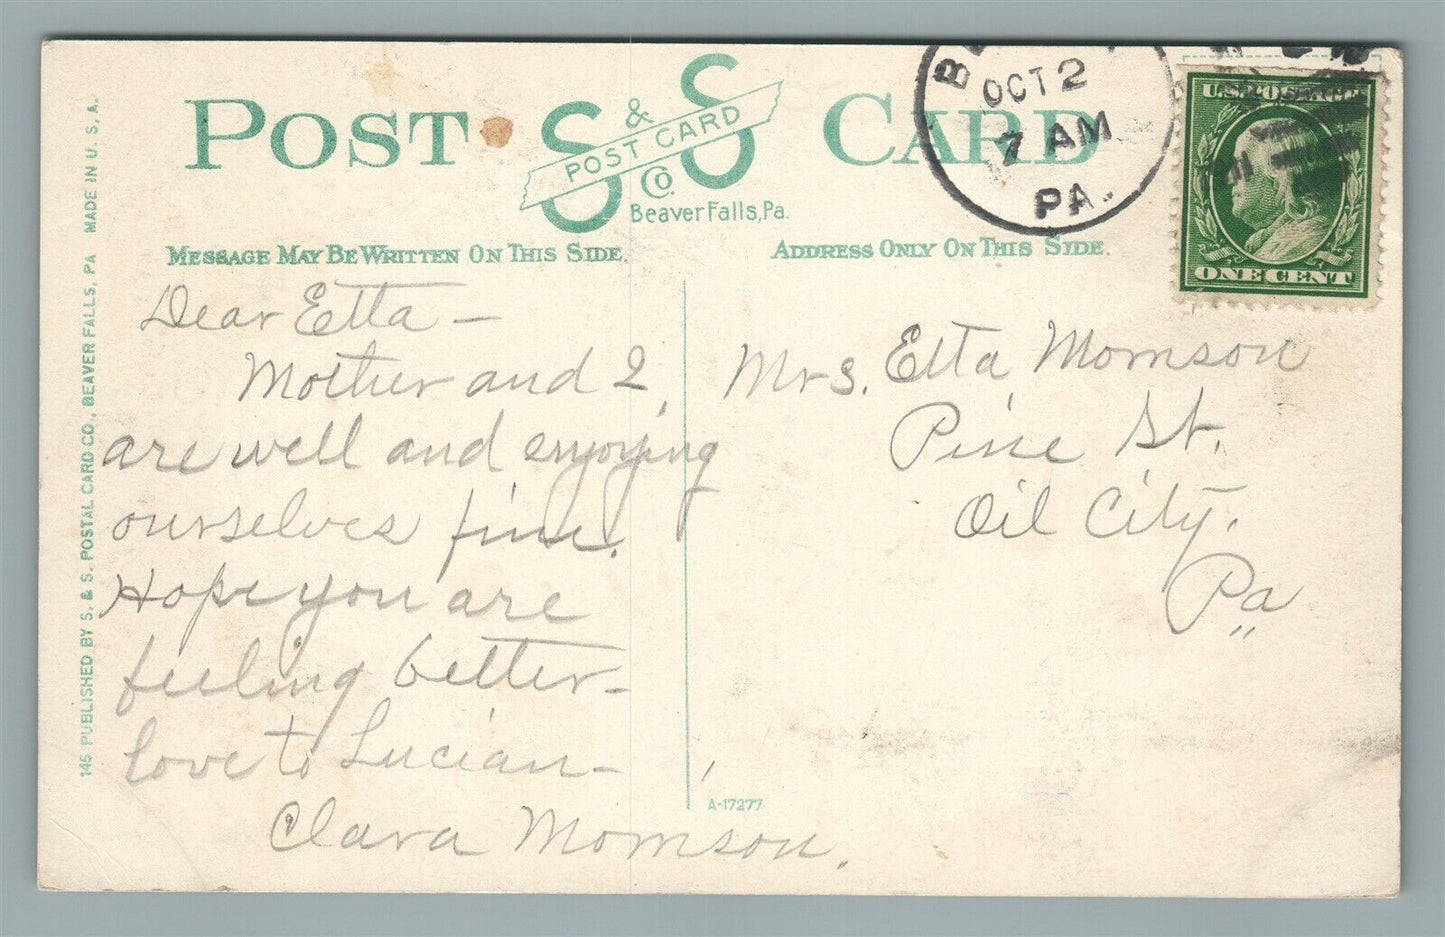 POST CARD
S & S
POST CARD
Co.
Beaver Falls, Pa.
MESSAGE MAY BE WRITTEN ON THIS SIDE.
ADDRESS ONLY ON THIS SIDE.
OCT 2
7 AM
PA.
U.S. POSTAGE
ONE CENT
145 PUBLISHED BY S. & S. POSTAL CARD CO., BEAVER FALLS, PA MADE IN U. S. A.
Dear Etta —
Mother and I
are well and enjoying
ourselves fine.
Hope you are
feeling better—
love to Lucian—
Clara Momson.
Mrs. Etta Momson
Pine St.
Oil City.
Pa
A-17277